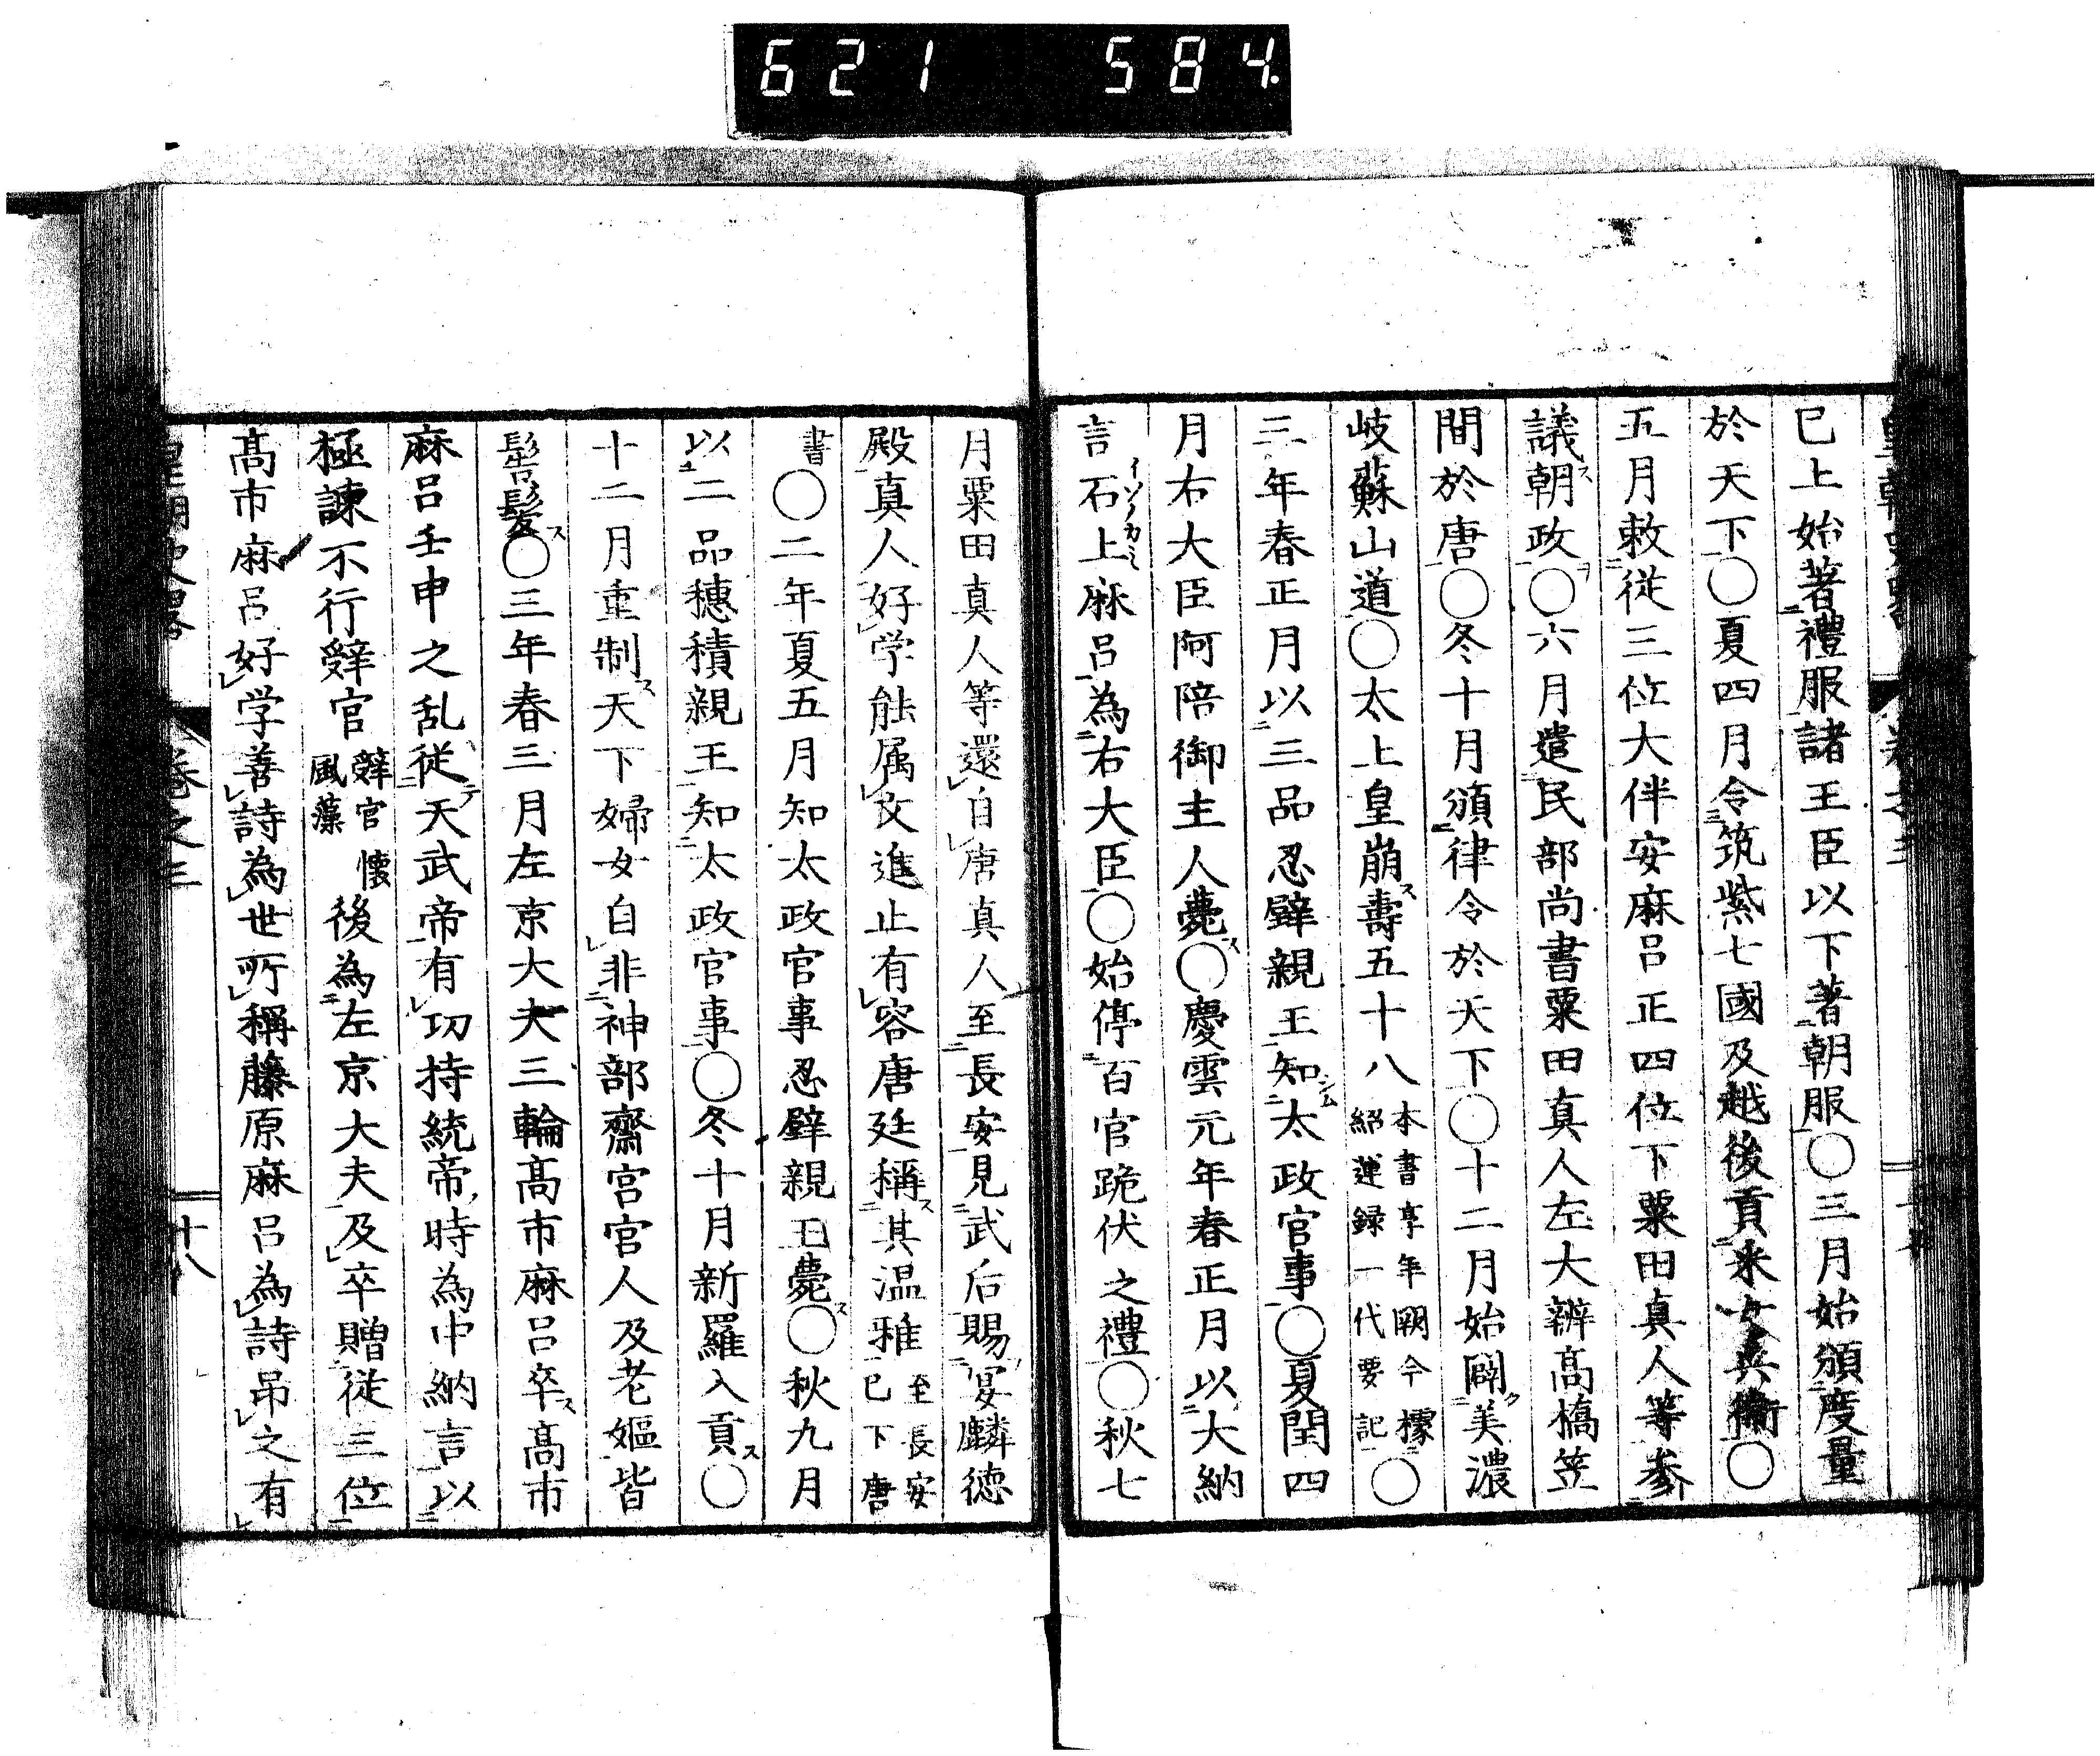 621 584.
巳上始著禮服諸王臣以下著朝服〇三月始頒度量
於天下〇夏四月令筑紫七國及越後貢釆女兵衛〇
五月敕從三位大伴安麻呂正四位下粟田真人等參
議朝政〇六月遣民部尚書粟田真人左大辨高橋笠
間於唐〇冬十月頒律令於天下〇十二月始闢美濃
岐蘇山道〇太上皇崩壽五十八本書享年闕今據紹運録一代要記〇
三年春正月以三品忍壁親王知太政官事〇夏閏四
月右大臣阿陪御主人薨〇慶雲元年春正月以大納
言石上麻呂為右大臣〇始停百官跪伏之禮〇秋七
月粟田真人等還自唐真人至長安見武后賜宴麟徳
殿真人好学能属文進止有容唐廷稱其温雅至長安巳下唐
書〇二年夏五月知太政官事忍壁親王薨〇秋九月
以二品穗積親王知太政官事〇冬十月新羅入貢〇
十二月重制天下婦女自非神部齋宮宮人及老嫗皆
髻髮〇三年春三月左京大夫三輪髙市麻呂卒髙市
麻呂壬申之乱従天武帝有功持統帝時為中納言以
極諫不行辭官辭官懐風藻後為左京大夫及卒贈従三位
髙市麻呂好学善詩為世所稱藤原麻呂為詩吊之有
皇朝史畧 巻之三 十八